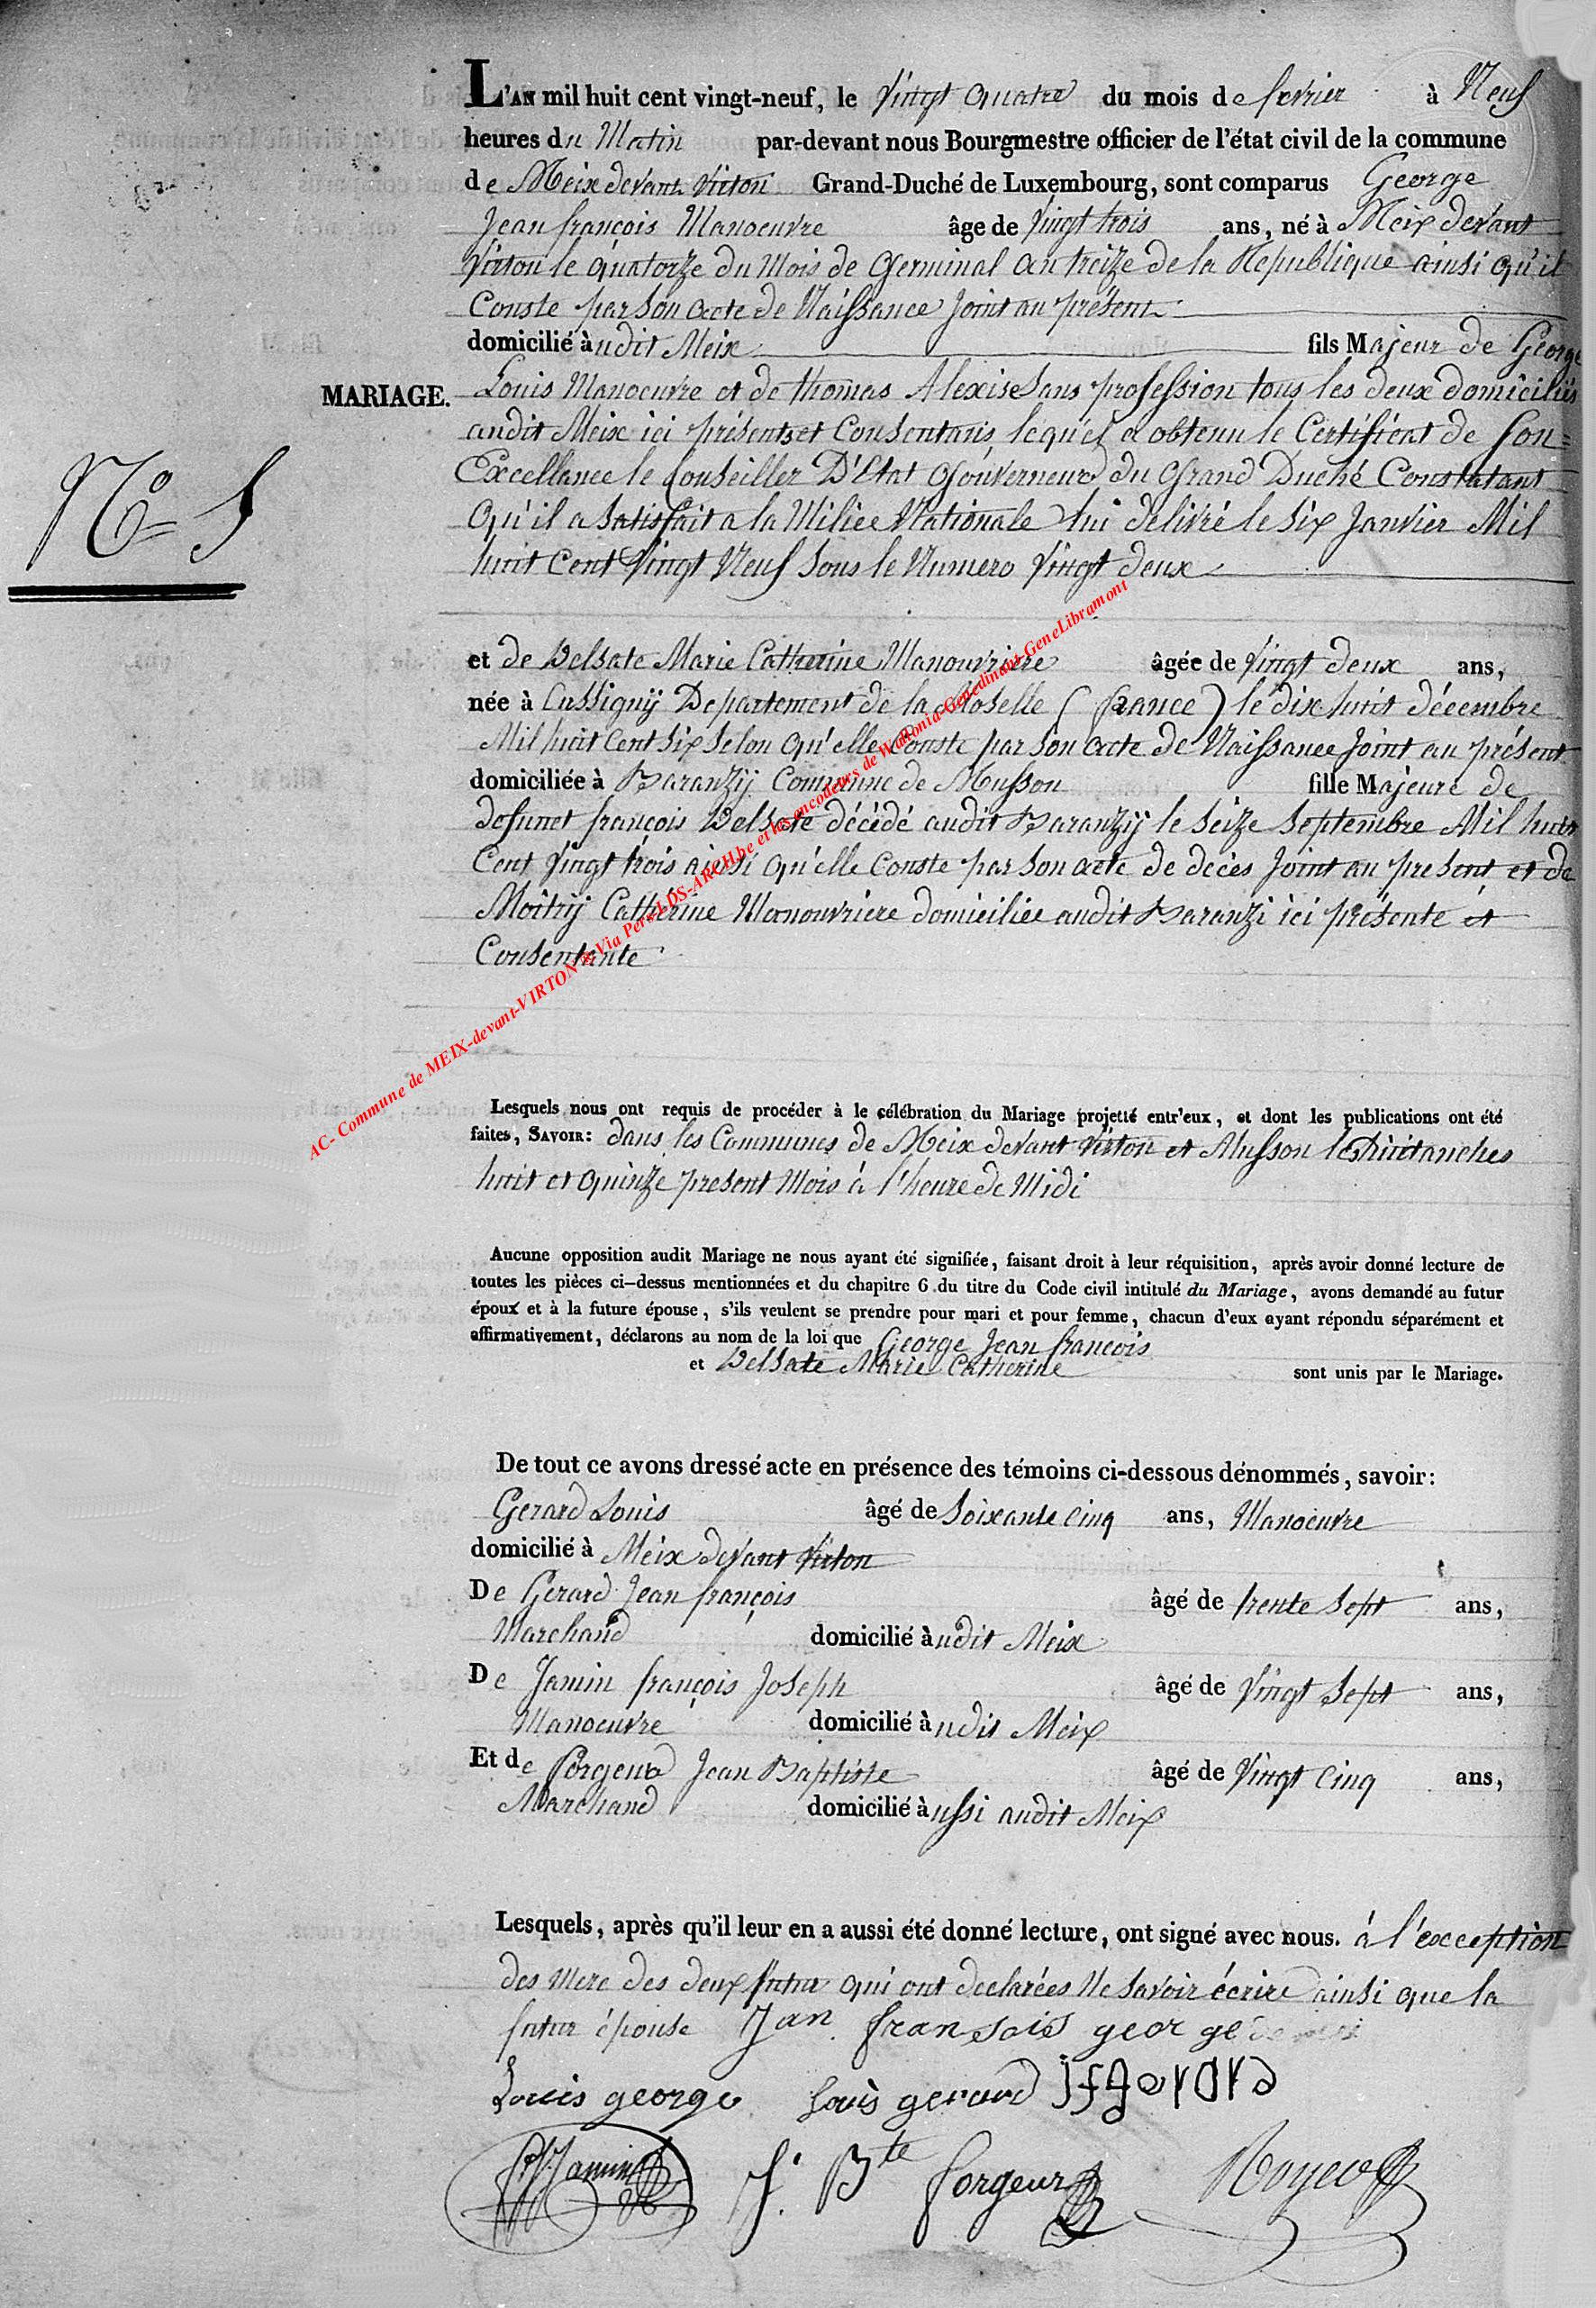 L'AN mil huit cent vingt-neuf, le Vingt quatre du mois de fevrier à Neuf
heures du Matin par-devant nous Bourgmestre officier de l'état civil de la commune
de Meix devant Virton Grand-Duché de Luxembourg, sont comparus George
Jean françois Manoeuvre âge de Vingt trois ans, né à Meix devant
Virton le quatorze du Mois de Germinal an treize de la Republique ainsi qu'il
Conste par Son acte de Naissance Joint au présent
domicilié audit Meix fils Majeur de George
MARIAGE.
Louis Manoeuvre et de thomas Alexise Sans profession tous les deux domiciliés
audit Meix ici présents et Consentans lequel a obtenu le Certificat de Son=
N° 5
Excellance le Conseiller D'Etat Gouverneur du Grand Duché Constatant
Qu'il a Satisfait a la Milice Nationale lui delivré le Six Janvier Mil
huit Cent Vingt Neuf Sous le Numero Vingt deux
et de Delsate Marie Catherine Manouvriere âgée de Vingt deux ans,
née à Cussigny Departement de la Moselle (france) le dix huit décembre
Mil huit Cent Six Selon qu'elle Conste par Son acte de Naissance Joint au présent
domiciliée à Baranzy Commune de Musson fille Majeure de
defunct françois Delsate décédé audit Baranzy le Seize Septembre Mil huit
Cent Vingt trois ainsi qu'elle Conste par Son acte de décès Joint au present et de
Moitry Catherine Manouvriere domiciliée audit Baranzi ici présente et
Consentante
AC- Commune de MEIX-devant-VIRTON Via Pers-LDS-ARCH.be et les encodeurs de Wallonia-Genedinant-GeneLibramont
Lesquels nous ont requis de procéder à le célébration du Mariage projetté entr'eux, et dont les publications ont été
faites, SAVOIR: dans les Communes de Meix devant Virton et Musson les
huit et quinze present Mois à l'heure de Midi
Aucune opposition audit Mariage ne nous ayant été signifiée, faisant droit à leur réquisition, après avoir donné lecture de
toutes les pièces ci-dessus mentionnées et du chapitre 6 du titre du Code civil intitulé du Mariage, avons demandé au futur
époux et à la future épouse, s'ils veulent se prendre pour mari et pour femme, chacun d'eux ayant répondu séparément et
affirmativement, déclarons au nom de la loi que George Jean francois
et Delsate Marie Catherine sont unis par le Mariage.
De tout ce avons dressé acte en présence des témoins ci-dessous dénommés, savoir:
Gerard Louis âgé de Soixante Cinq ans, Manoeuvre
domicilié à Meix devant Virton
De Gerard Jean françois âgé de trente Sept ans,
Marchand domicilié audit Meix
De Jamin françois Joseph âgé de Vingt Sept ans,
Manoeuvre domicilié audit Meix
Et de Forgeur Jean Baptiste âgé de Vingt Cinq ans,
Marchand domicilié aussi audit Meix
Lesquels, après qu'il leur en a aussi été donné lecture, ont signé avec nous. à l'exception
des Mere des deux futur qui ont declarées Ne Savoir écrire ainsi que la
futur épouse Jan fransois george
Louis george Louis gerard jfgerard
Jamin J. Bte forgeur